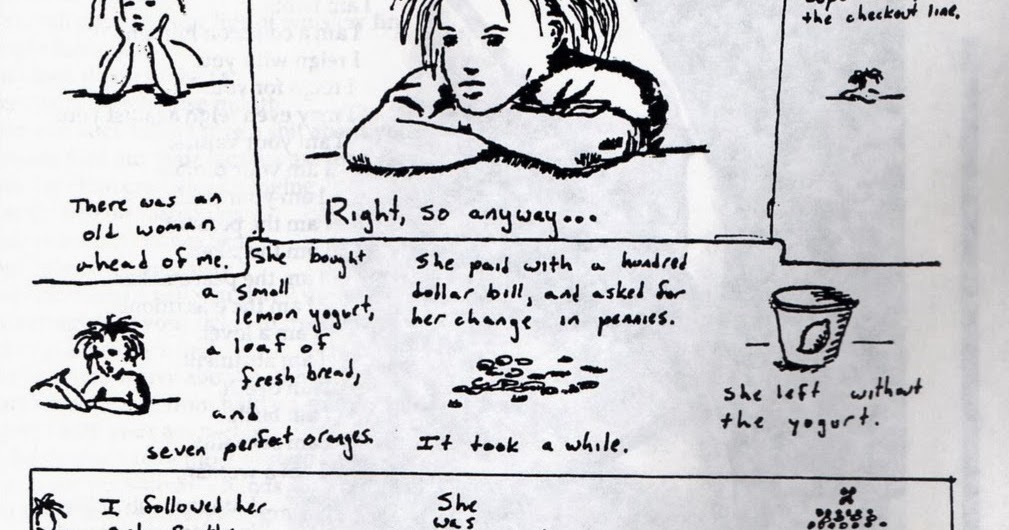 the checkout line.
There was an
old woman
ahead of me.
Right, so anyway...
She bought
a small
lemon yogurt,
a loaf of
fresh bread,
and
seven perfect oranges.
She paid with a hundred
dollar bill, and asked for
her change in pennies.
It took a while.
She left without
the yogurt.
I followed her
She
was